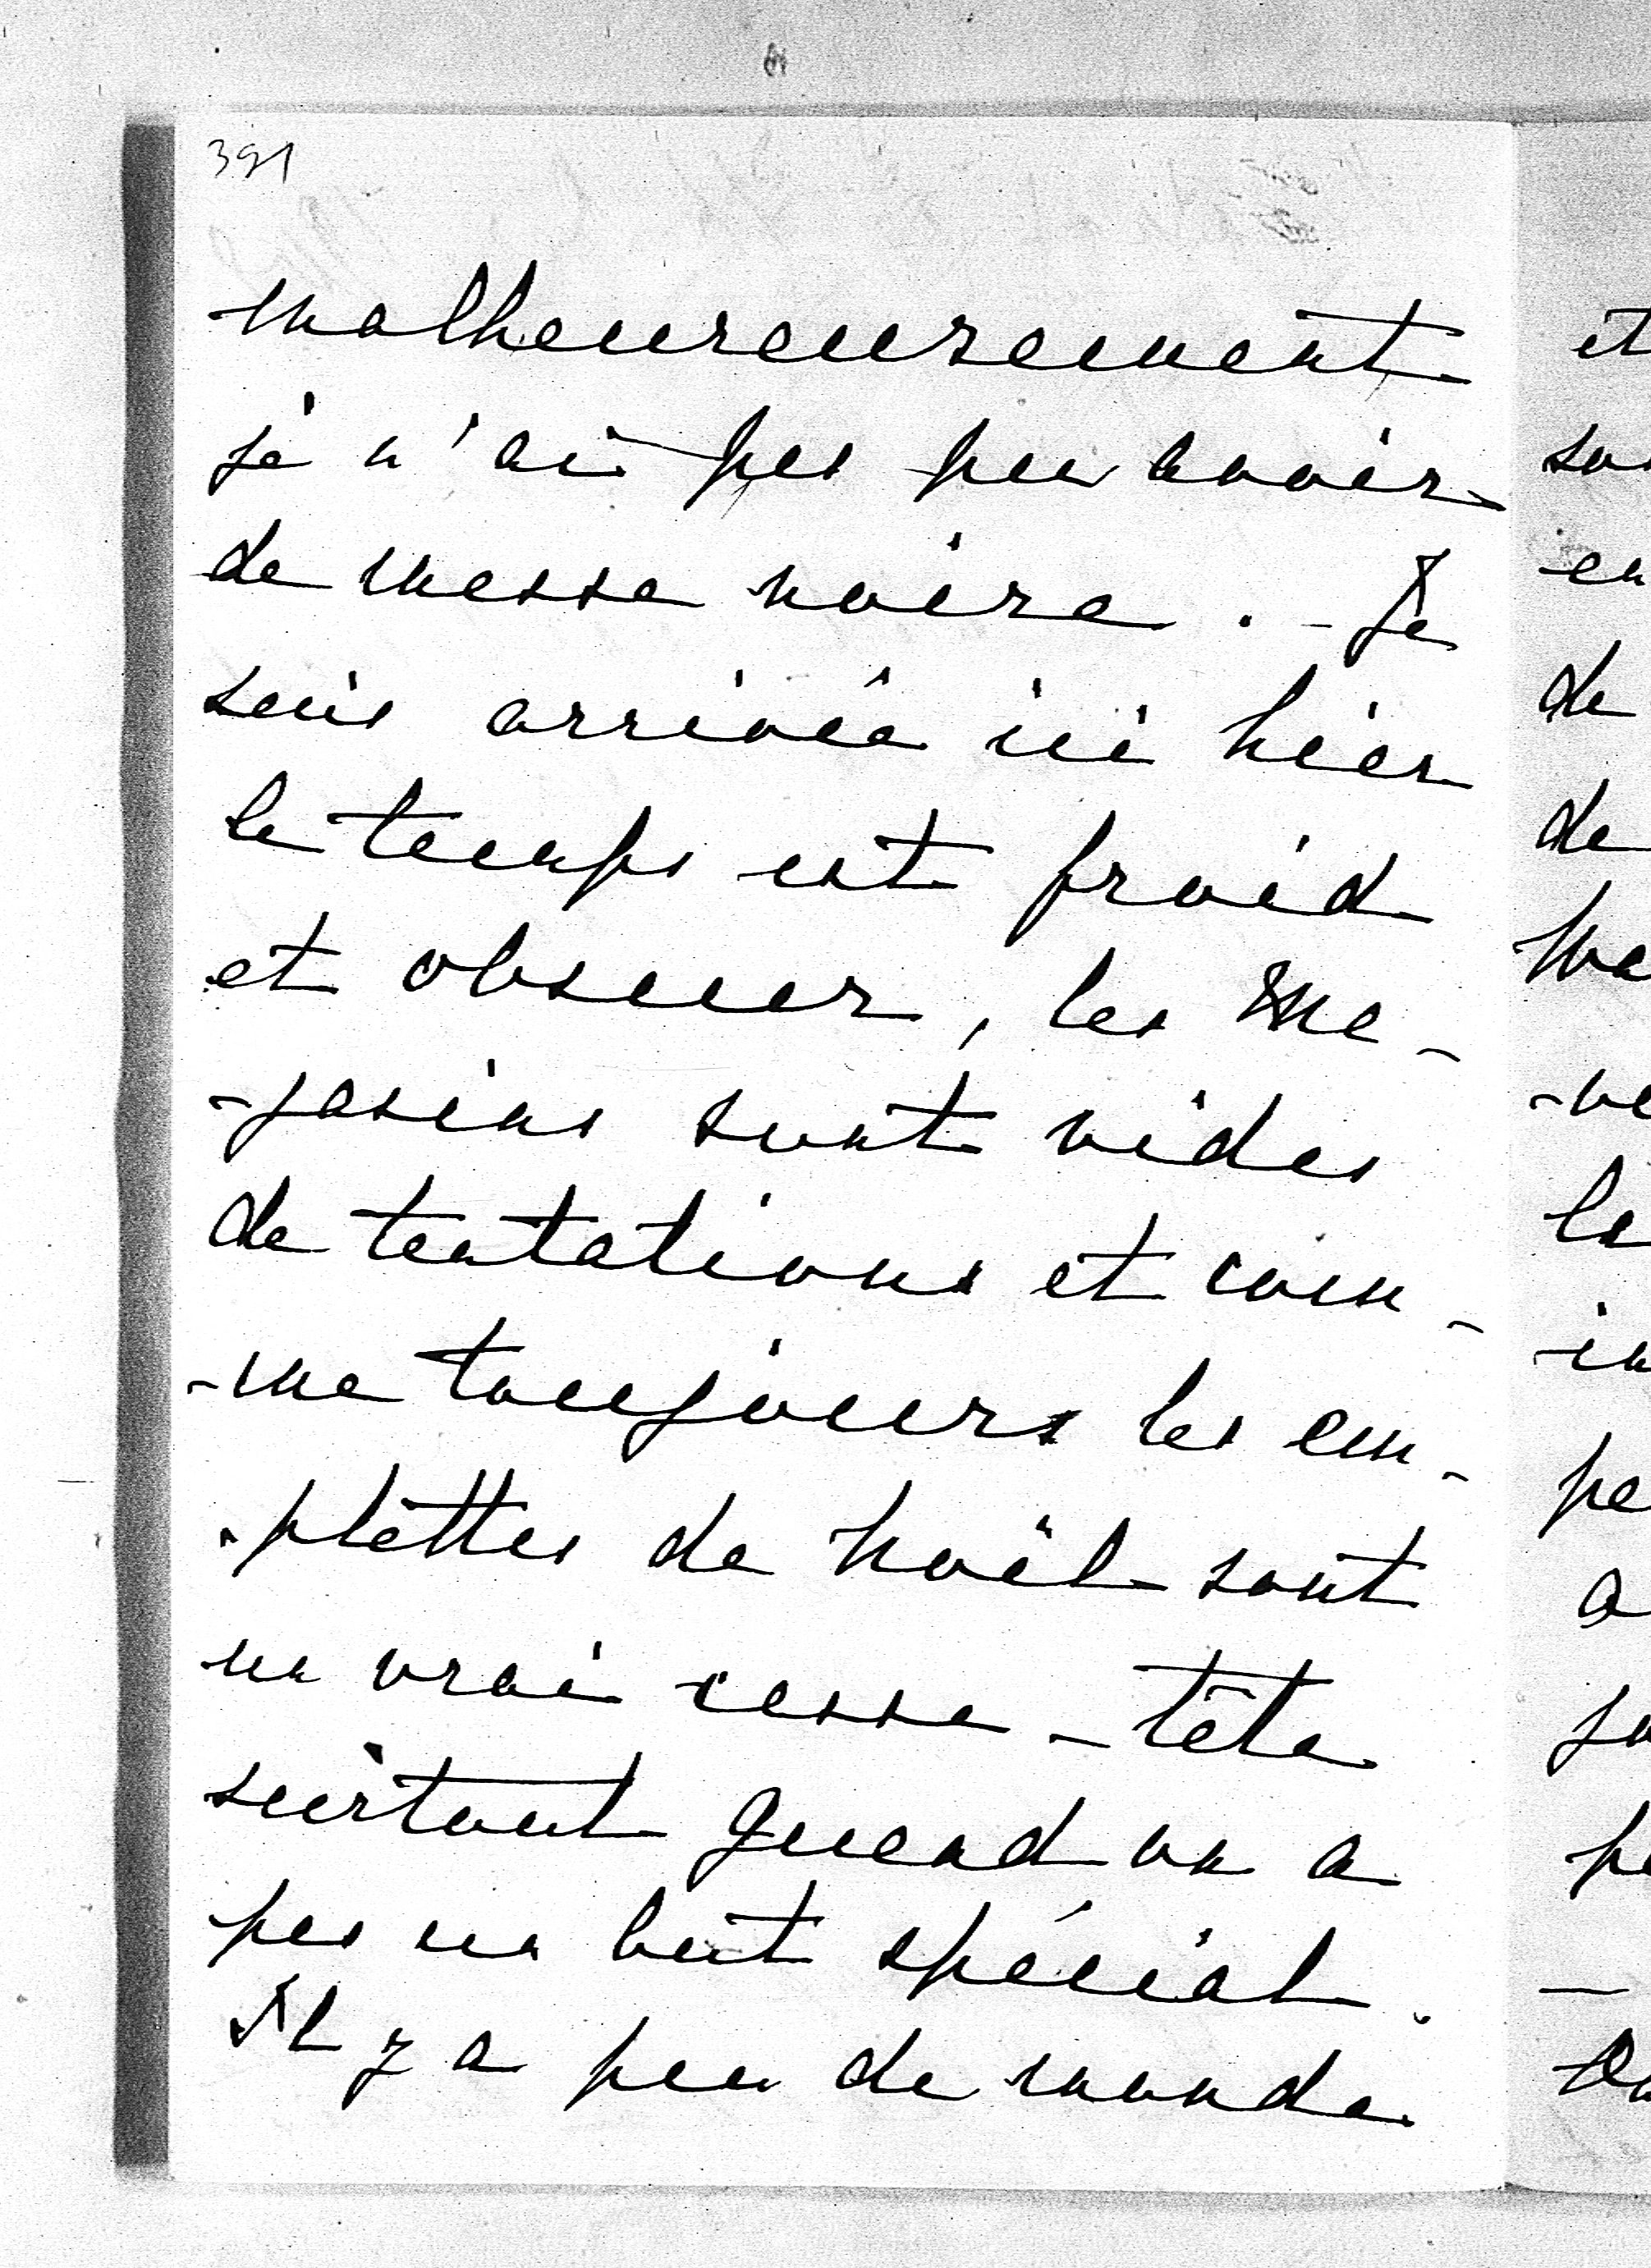 391
malheureusement
je n'ai pas pu avoir
de messe noire. - Je
suis arrivée ici hier
le temps est froid
et obscur, les ma-
-gasins sont vides
de tentations et com-
-me toujours les em-
-plettes de Noël sont
un vrai casse-tête
surtout quand on a
pas un but spécial.
Il y a peu de monde
et
de
de